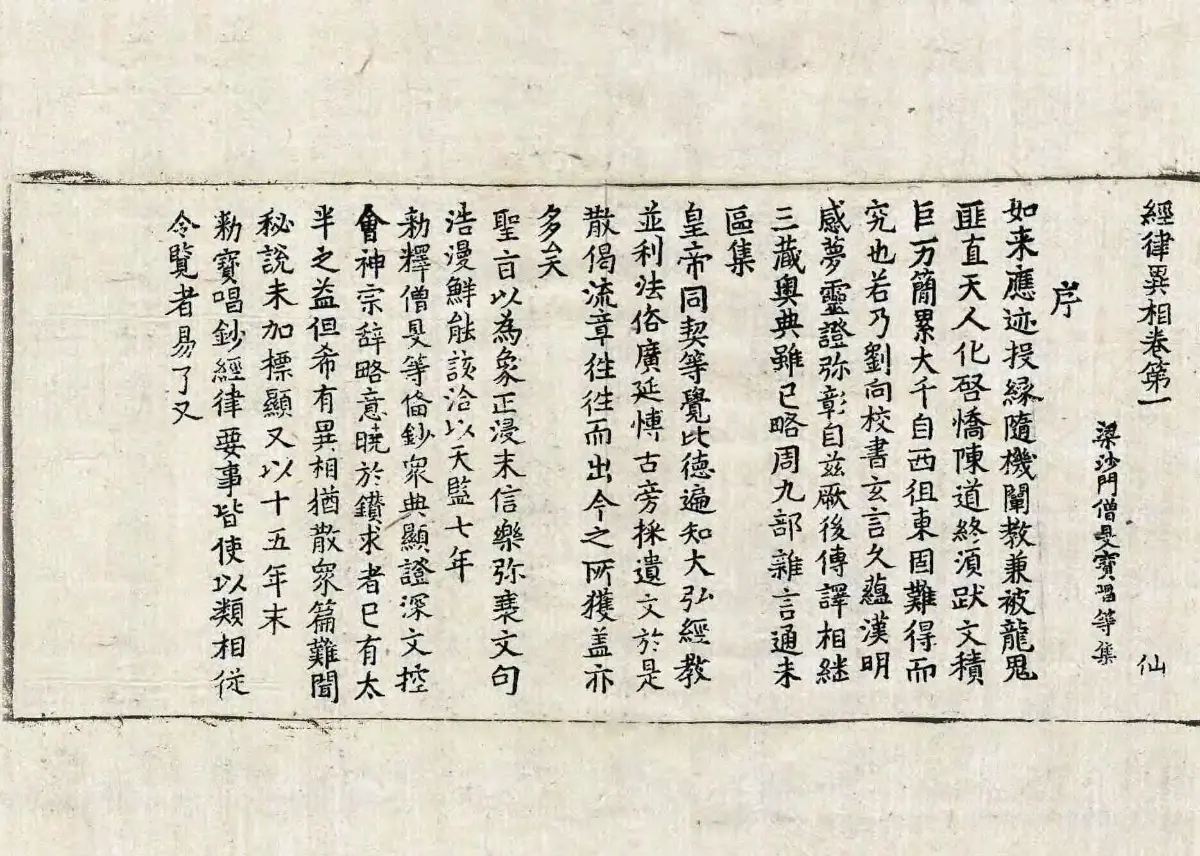 經律異相卷第一 仙
梁沙門僧旻寶唱等集
序
如来應迹投緣隨機闡教兼被龍鬼
匪直天人化啓憍陳道終須跋文積
巨万簡累大千自西徂東固難得而
究也若乃劉向校書玄言久蘊漢明
感夢靈證弥彰自茲厥後傳譯相継
三藏奧典雖已略周九部雜言通未
區集
皇帝同契等覺比德遍知大弘經教
並利法俗廣延愽古旁採遺文於是
散偈流章徃徃而出今之所獲盖亦
多矣
聖旨以為象正浸末信樂弥衰文句
浩漫鮮能該洽以天監七年
勑釋僧旻等俻鈔衆典顯證深文控
會神宗辞略意曉於鑽求者已有太
半之益但希有異相猶散衆篇難聞
秘說未加標顯又以十五年末
勑寶唱鈔經律要事皆使以類相従
令覽者易了又